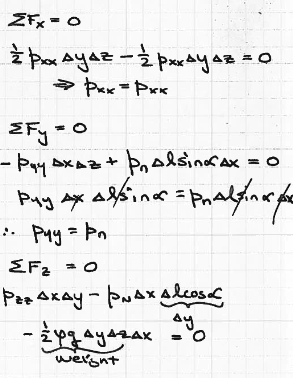 ΣFx = 0
½ pxx Δy Δz − ½ pxx Δy Δz = 0
⇒ pxx = pxx
ΣFy = 0
− pyy Δx Δz + pn Δl sin α Δx = 0
pyy Δx Δl sin α = pn Δl sin α Δx
∴ pyy = pn
ΣFz = 0
pzz Δx Δy − pN Δx Δl cos α
Δy
− ½ ρg Δy Δz Δx = 0
weight